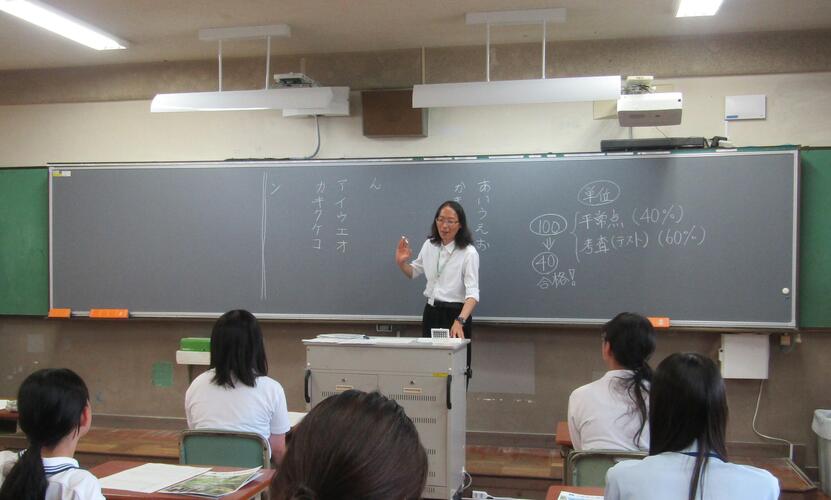 単位
100
平常点（40%）
考査（テスト）（60%）
⇓
40
合格!
あいうえお
か
ん
アイウエオ
カキクケコ
ン